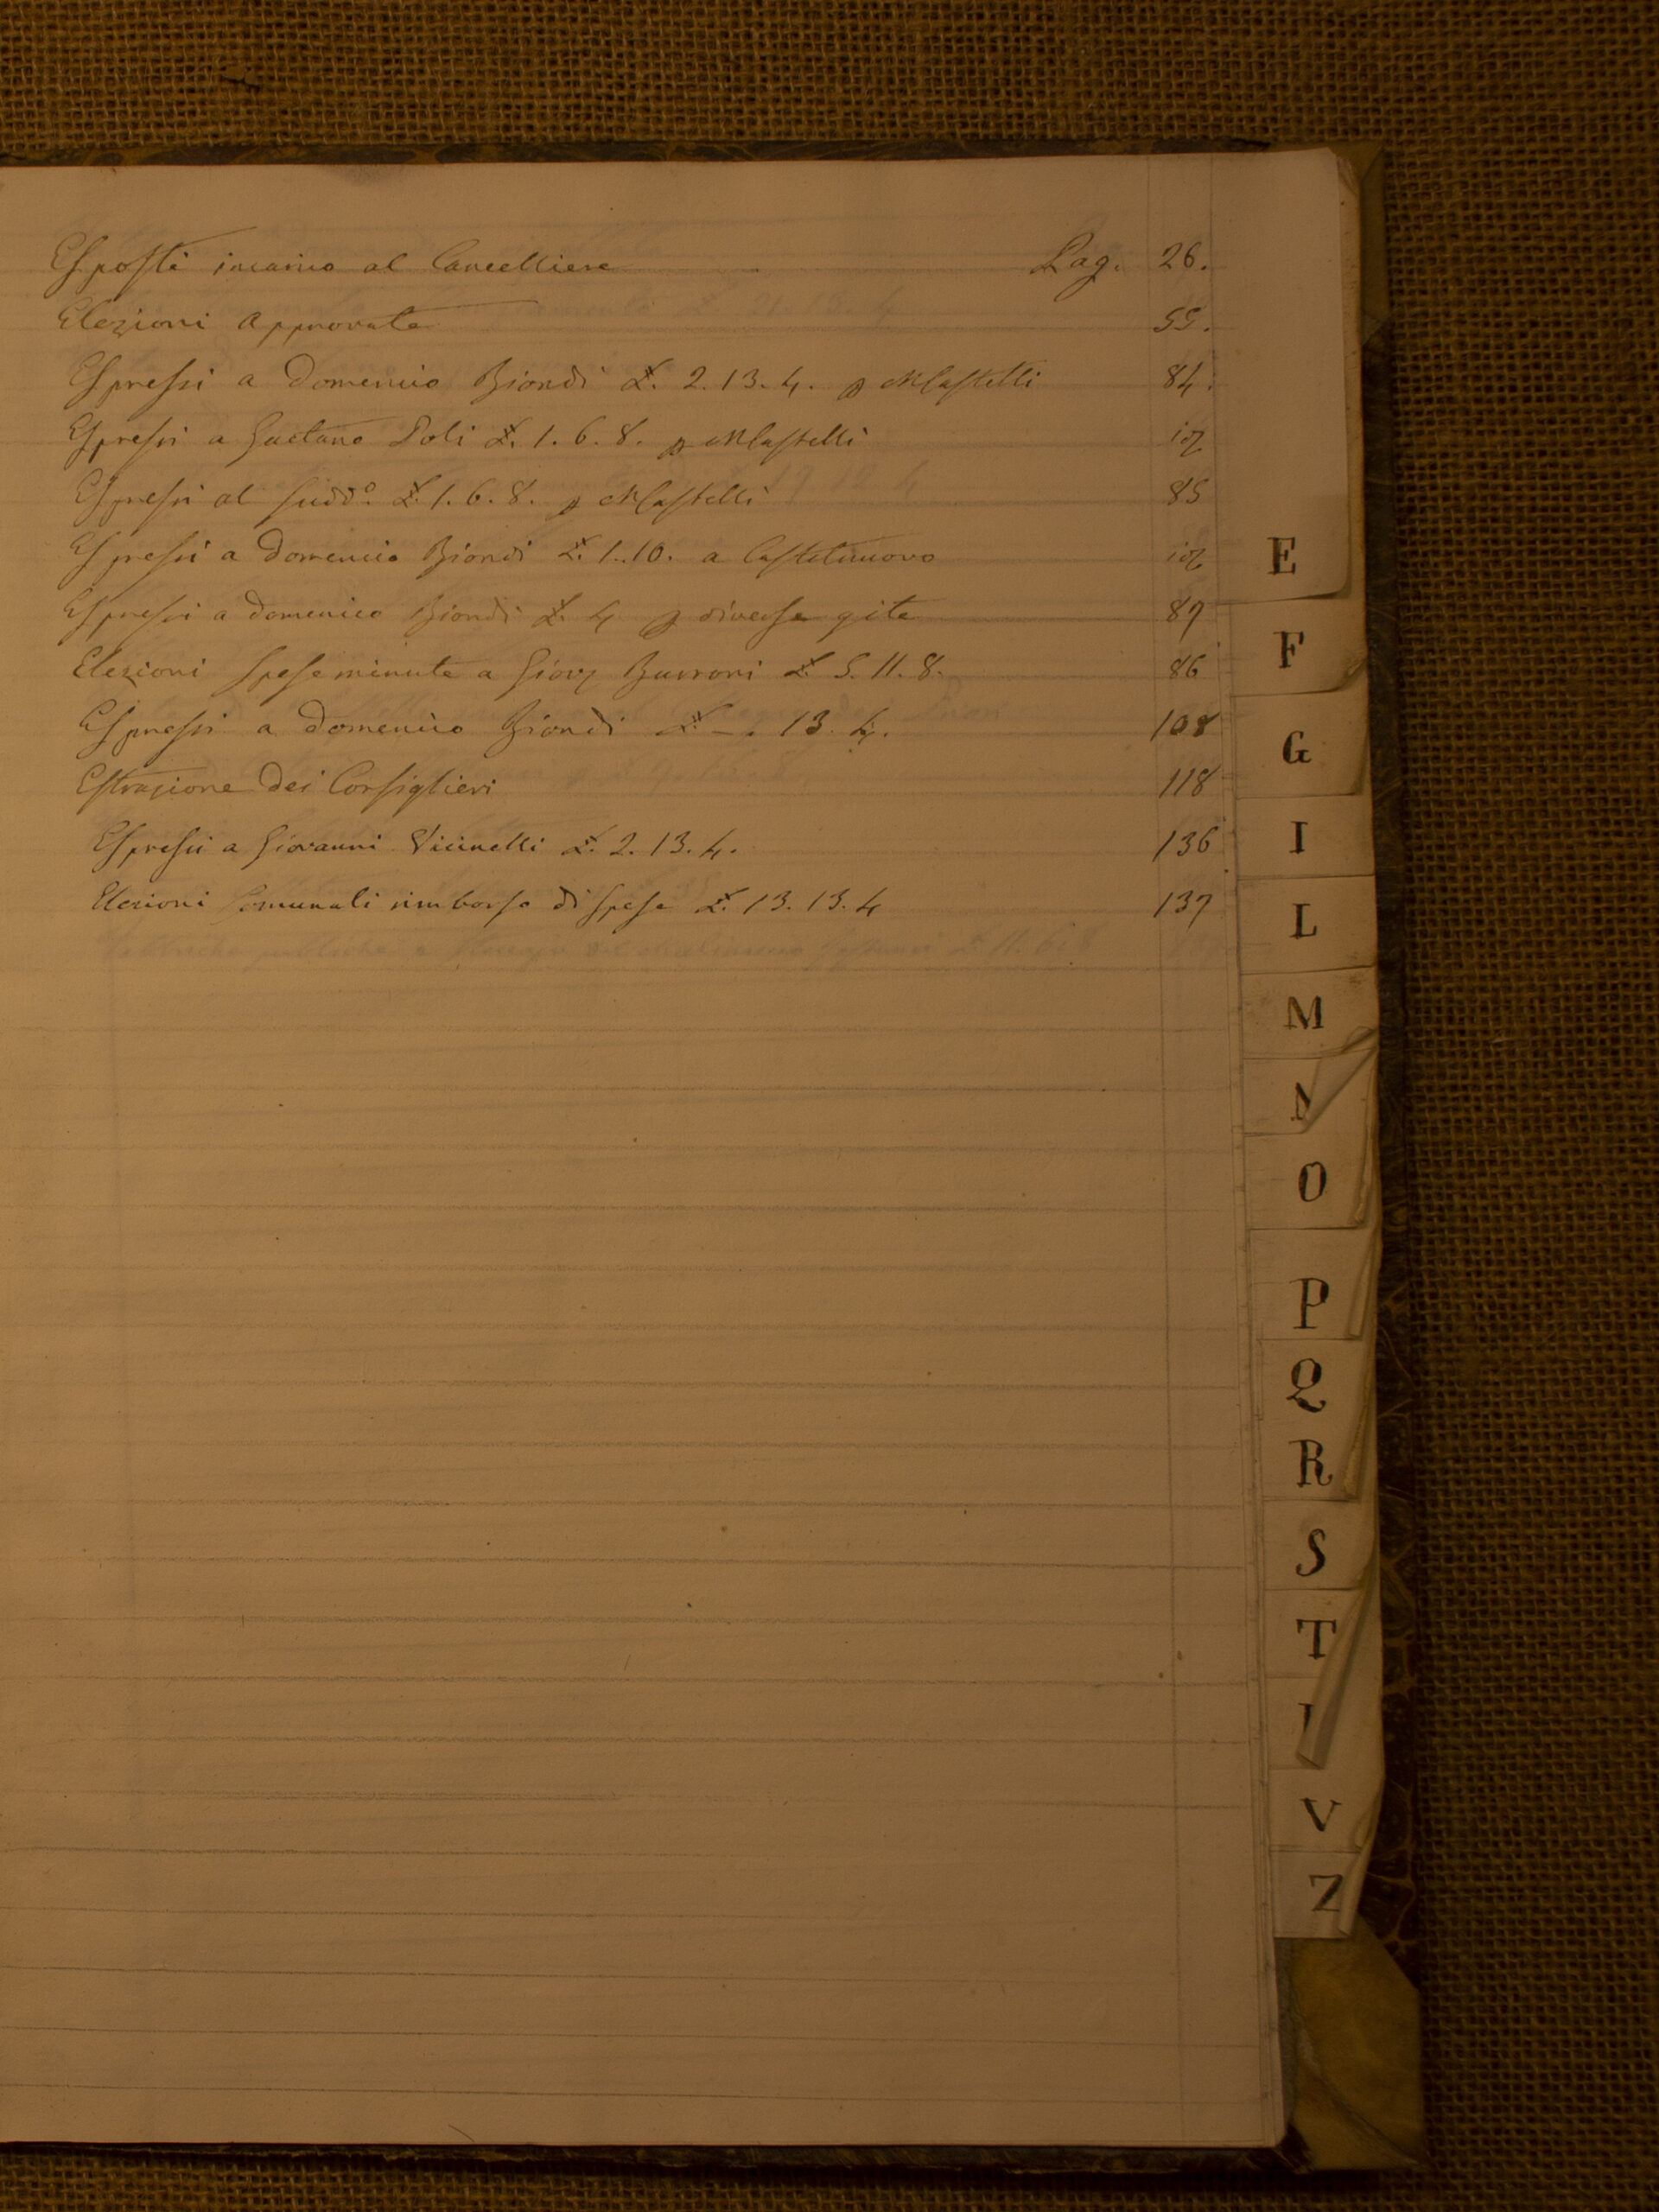 Esposti incarico al Cancelliere Pag. 26.
Elezioni approvate 55.
Espressi a Domenico Biondi £. 2. 13. 4. p MCastelli 84.
Espressi a Gaetano Poli £. 1. 6. 8. p MCastelli id
Espressi al Sudd° £. 1. 6. 8. p MCastelli 85
Espressi a Domenico Biondi £. 1. 10. a Castelnuovo id
Espressi a Domenico Biondi £. 4 p diverse gite 87
Elezioni Spese minute a Giov Burroni £ 5. 11. 8. 86
Espressi a Domenico Biondi £. – . 13. 4. 108
Estrazione dei Consiglieri 118
Espressi a Giovanni Vicinelli £. 2. 13. 4. 136
Elezioni Comunali rimborso di Spese £. 13. 13. 4 137
E
F
G
I
L
M
N
O
P
Q
R
S
T
V
Z